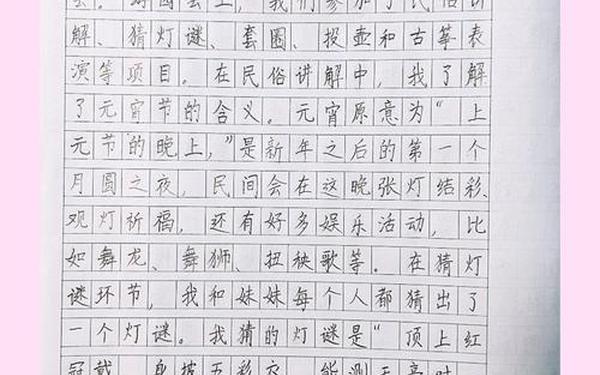 会。游园会上，我们参加了民俗讲
解、猜灯谜、套圈、投壶和古筝表
演等项目。在民俗讲解中，我了解
了元宵节的含义。元宵原意为“上
元节的晚上，”是新年之后的第一个
月圆之夜，民间会在这晚张灯结彩、
观灯祈福，还有好多娱乐活动，比
如舞龙、舞狮、扭秧歌等。在猜灯
谜环节，我和妹妹每个人都猜出了
一个灯谜。我猜的灯谜是“顶上红
冠戴，身披五彩衣，能测天亮时，